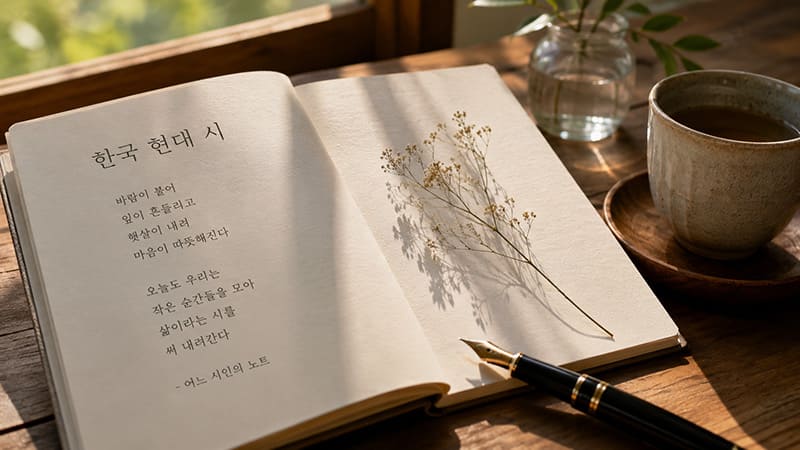 한국 현대 시
바람이 불어
잎이 흔들리고
햇살이 내려
마음이 따뜻해진다
오늘도 우리는
작은 순간들을 모아
삶이라는 시를
써 내려간다
- 어느 시인의 노트